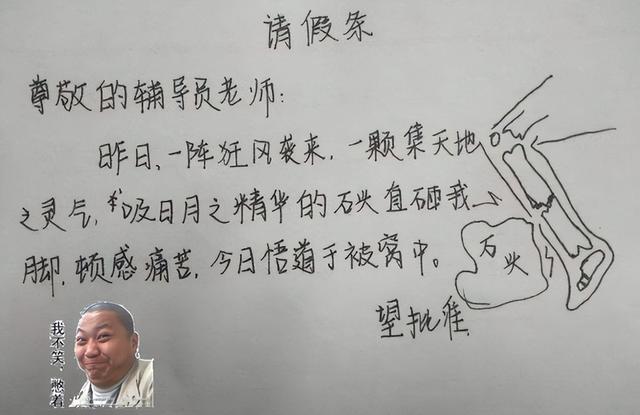 请假条
尊敬的辅导员老师：
昨日，一阵狂风袭来，一颗集天地
之灵气，吸日月之精华的石头直砸我
脚，顿感痛苦，今日悟道于被窝中。
石头
望批准
我不笑，憋着